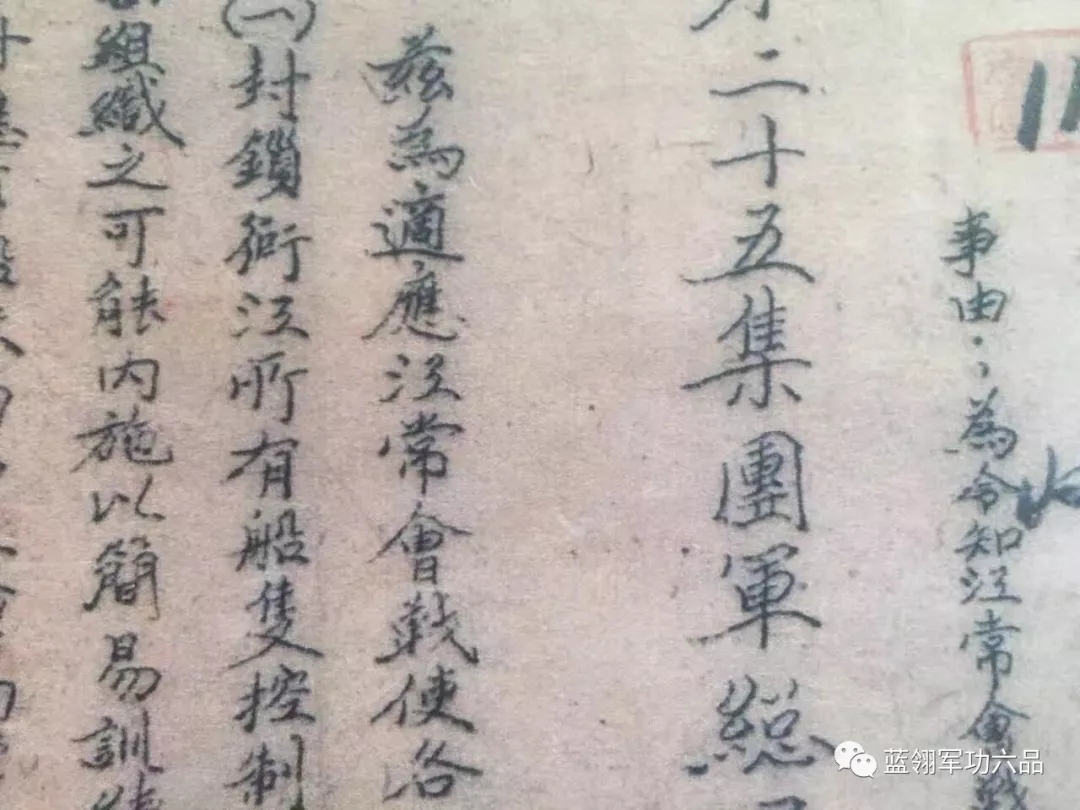 11
事由：為令知江常會戰
二十五集團軍總
茲為適應江常會戰使各
(一)封鎖衢江所有船隻控制
組織之可能內施以簡易訓練
蓝翎军功六品